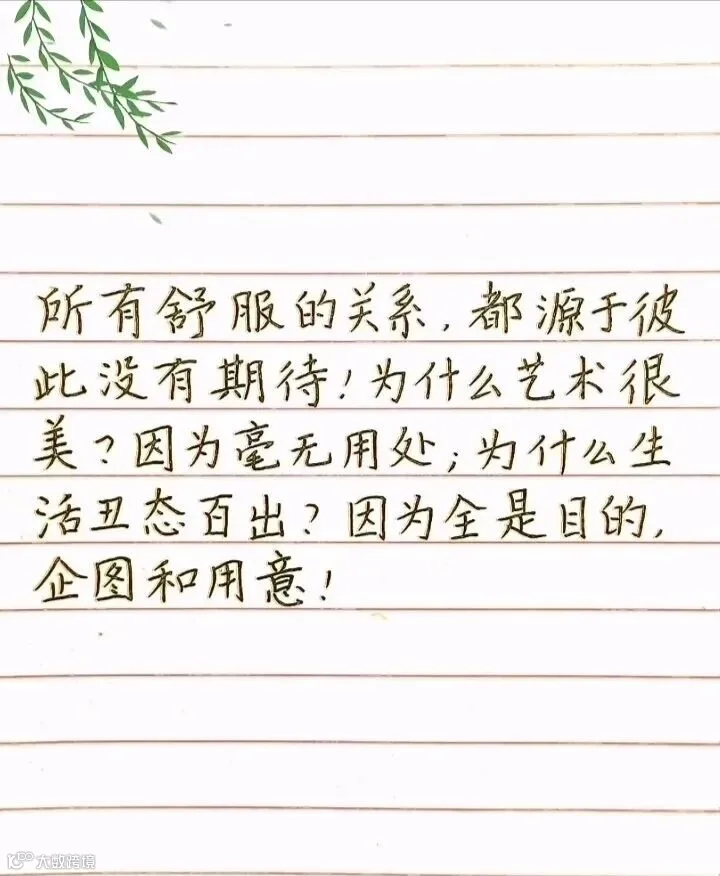 所有舒服的关系,都源于彼
此没有期待!为什么艺术很
美?因为毫无用处;为什么生
活丑态百出?因为全是目的,
企图和用意!
大数跨境